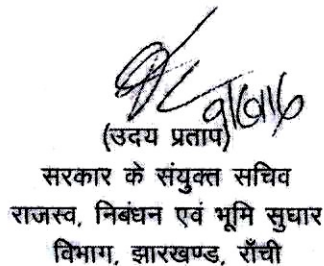 (उदय प्रताप)
सरकार के संयुक्त सचिव
राजस्व, निबंधन एवं भूमि सुधार
विभाग, झारखण्ड, राँची